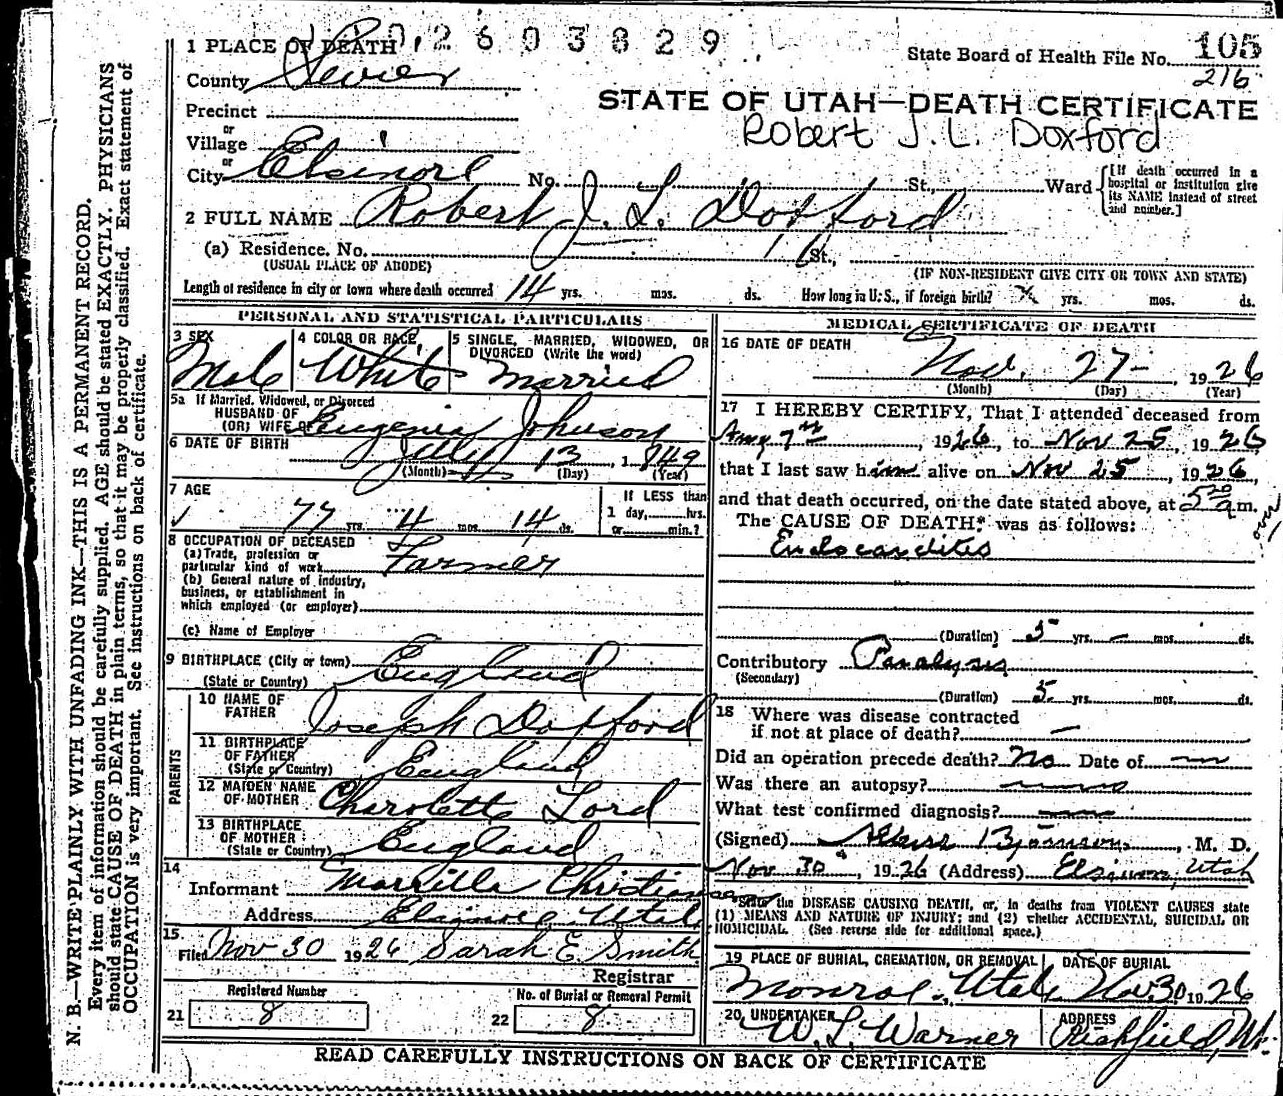 0 2 6 0 3 8 2 9
State Board of Health File No. 105
216
1 PLACE OF DEATH
County Sevier
STATE OF UTAH—DEATH CERTIFICATE
Robert J. L. Doxford
Precinct
or
Village
or
City Elsinore No. St., Ward [If death occurred in a hospital or institution give its NAME instead of street and number.]
2 FULL NAME Robert J. L. Doxford
(a) Residence. No. St.,
(USUAL PLACE OF ABODE) (IF NON-RESIDENT GIVE CITY OR TOWN AND STATE)
Length of residence in city or town where death occurred 14 yrs. mos. ds. How long in U. S., if foreign birth? yrs. mos. ds.
PERSONAL AND STATISTICAL PARTICULARS
3 SEX Male
4 COLOR OR RACE White
5 SINGLE, MARRIED, WIDOWED, OR DIVORCED (Write the word) Married
5a If Married, Widowed, or Divorced
HUSBAND OF
(OR) WIFE OF Eugenia Johnson
6 DATE OF BIRTH July 13, 1849
(Month) (Day) (Year)
7 AGE 77 yrs. 4 mos. 14 ds.
If LESS than
1 day, hrs.
or min.?
8 OCCUPATION OF DECEASED
(a) Trade, profession or
particular kind of work Farmer
(b) General nature of industry,
business, or establishment in
which employed (or employer)
(c) Name of Employer
9 BIRTHPLACE (City or town)
(State or Country) England
PARENTS
10 NAME OF
FATHER Joseph Doxford
11 BIRTHPLACE
OF FATHER
(State or Country) England
12 MAIDEN NAME
OF MOTHER Charolette Lord
13 BIRTHPLACE
OF MOTHER
(State or Country) England
14
Informant Marrilla Christiansen
Address Elsinore Utah
15
Filed Nov 30 1926 Sarah E. Smith
Registrar
Registered Number
21 8
No. of Burial or Removal Permit
22 8
MEDICAL CERTIFICATE OF DEATH
16 DATE OF DEATH
Nov. 27, 1926
(Month) (Day) (Year)
17 I HEREBY CERTIFY, That I attended deceased from
7th, 1926, to Nov 25, 1926
that I last saw him alive on Nov 25, 1926,
and that death occurred, on the date stated above, at 5 a m.
The CAUSE OF DEATH* was as follows:
Endocardites
(Duration) 5 yrs. – mos. ds.
Contributory Paralysis
(Secondary)
(Duration) 5 yrs. mos. ds.
18 Where was disease contracted
if not at place of death? —
Did an operation precede death? No Date of
Was there an autopsy?
What test confirmed diagnosis?
(Signed) , M. D.
Nov 30, 1926 (Address) Elsinore, Utah
State the DISEASE CAUSING DEATH, or, in deaths from VIOLENT CAUSES state
(1) MEANS AND NATURE OF INJURY; and (2) whether ACCIDENTAL, SUICIDAL OR
HOMICIDAL. (See reverse side for additional space.)
19 PLACE OF BURIAL, CREMATION, OR REMOVAL
Monroe, Utah
DATE OF BURIAL
Nov 30 1926
20 UNDERTAKER
W. L. Warner
ADDRESS
Richfield, Ut.
READ CAREFULLY INSTRUCTIONS ON BACK OF CERTIFICATE
N. B.—WRITE PLAINLY WITH UNFADING INK—THIS IS A PERMANENT RECORD.
Every item of information should be carefully supplied. AGE should be stated EXACTLY. PHYSICIANS
should state CAUSE OF DEATH in plain terms, so that it may be properly classified. Exact statement of
OCCUPATION is very important. See instructions on back of certificate.